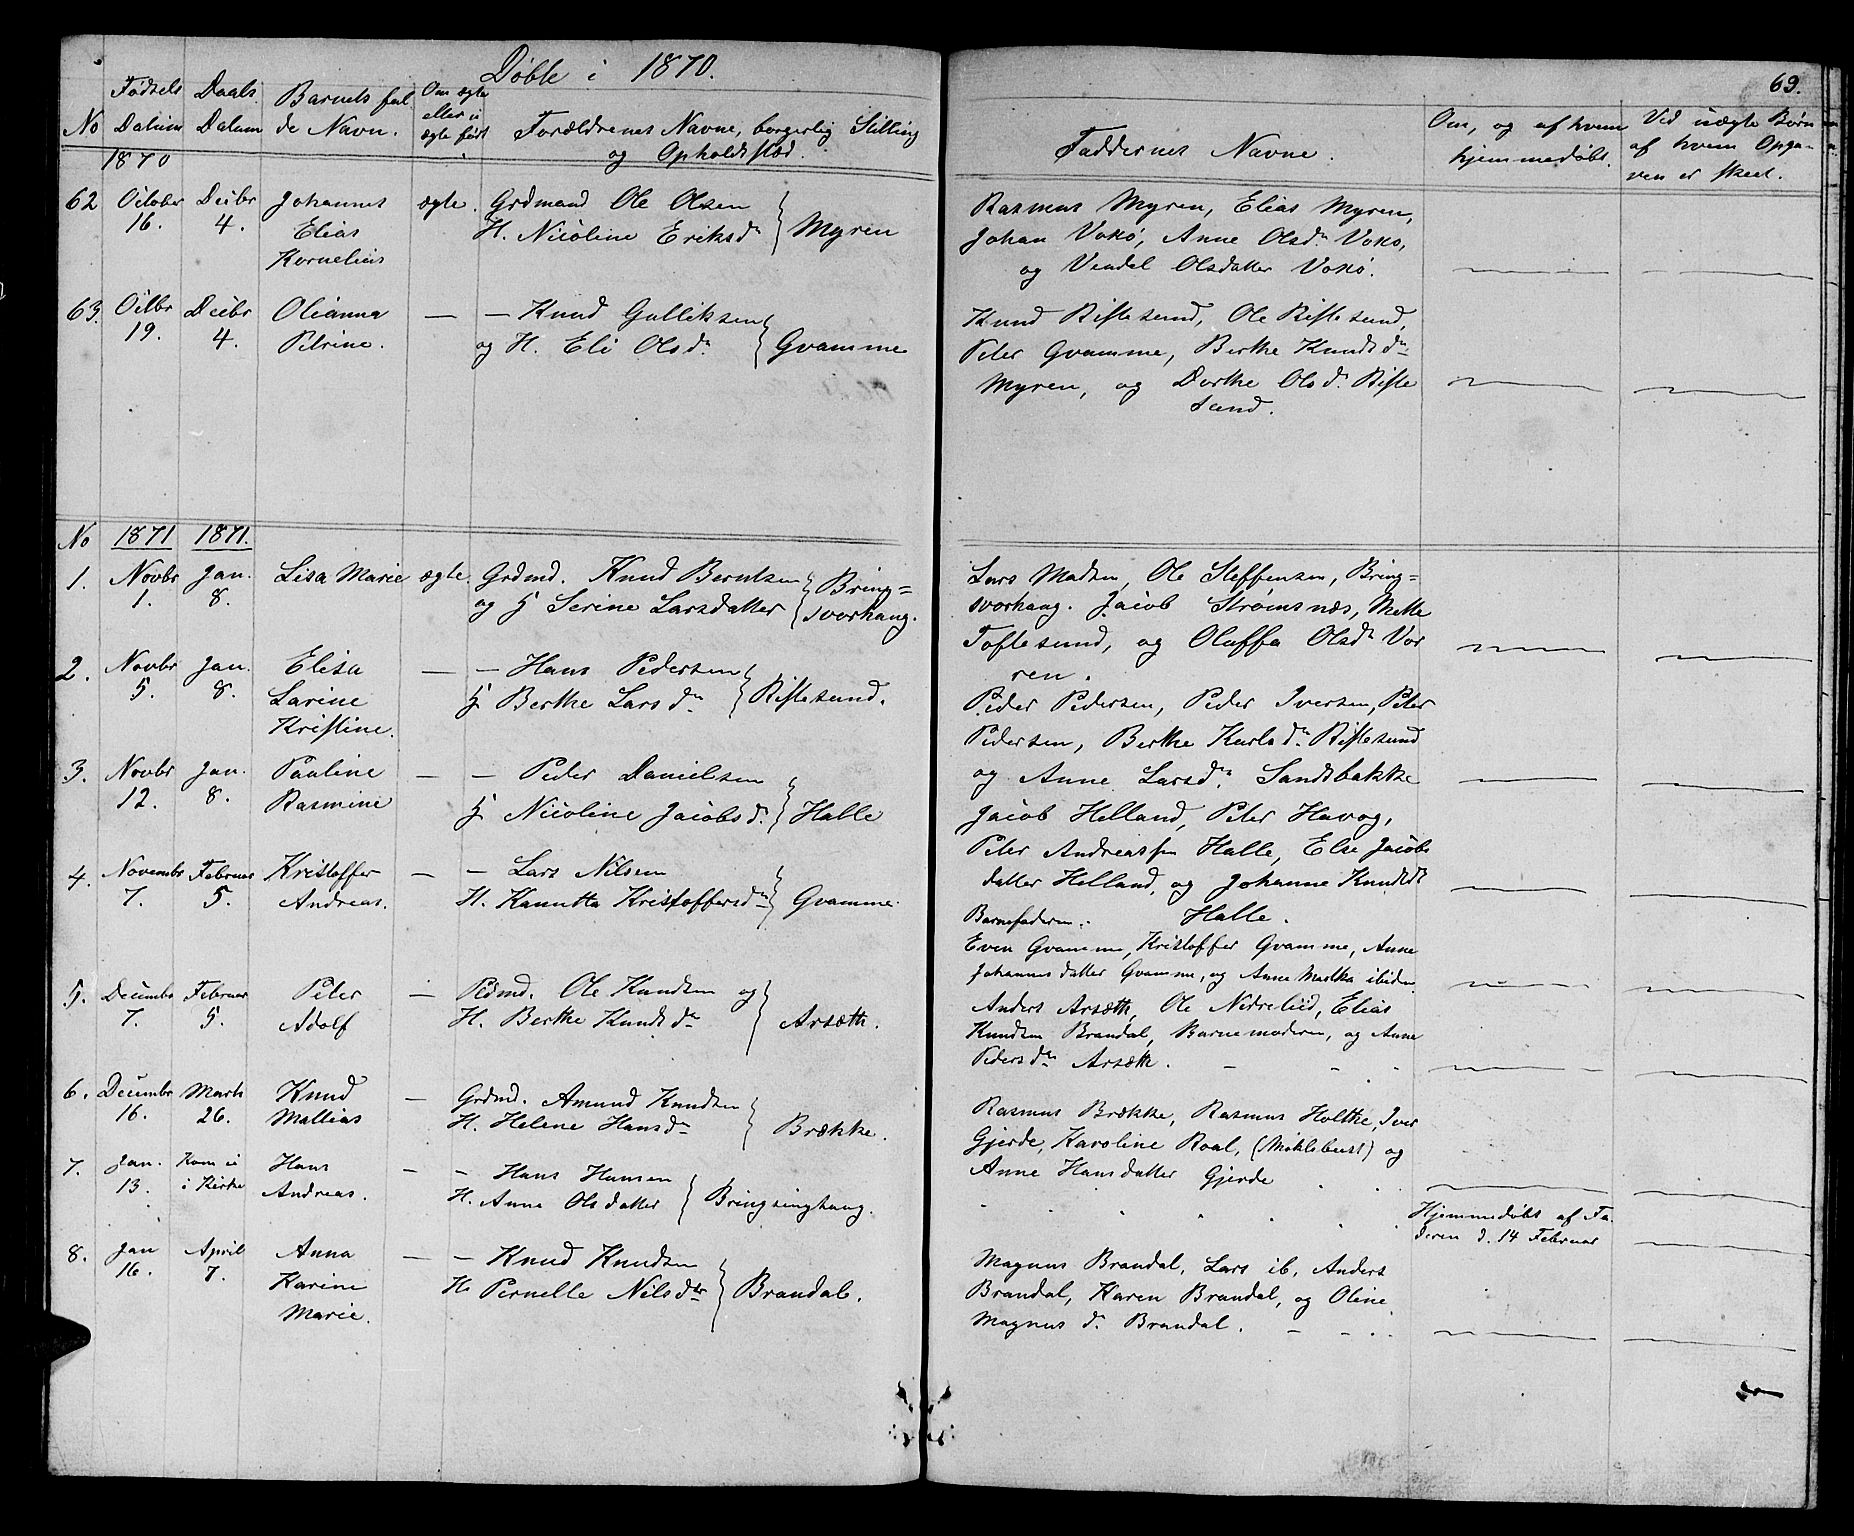 Døbte i 1870.
No
Fødsels Datum
Daabs Datum
Barnets ful-
de Navn.
Om ægte
eller u
ægte født
Forældrenes Navne, borgerlig Stilling
og Opholdssted.
1870
62 October 16. Decbr 4. Johannes Elias Kornelius ægte. Grdmand Ole Olsen
H. Nicoline Eriksdr } Myren
63. Octbr 19. Decbr 4. Olianna Petrine. — — Knud Gulliksen
og H. Eli Olsdr } Gvamme
No 1871 1871.
1. Novbr 1. Jan. 8. Lisa Marie ægte. Grdmd. Knud Berntsen
og H Serine Larsdatter } Bring=
svorhaug.
2. Novbr 5. Jan. 8. Elisa Larine Kristine. — — Hans Pedersen
H Berthe Larsdr } Riftesund.
3. Novbr 12. Jan. 8. Pauline Rasmine — — Peder Danielsen
H Nicoline Jacobsd. } Halle
4. Novembr 7. Februar 5. Kristoffer Andreas. — — Lars Nilsen
H. Kanutta Kristoffersdr } Gvamme.
5. Decembr 7. Februar 5. Peter Adolf — Pdmd. Ole Knudsen og
H. Berthe Knudsdr } Arsæth.
6. Decembr 16. Marts 26. Knud Mathias — Grdmd. Amund Knudsen
H. Helene Hansdr } Brække.
7. Jan. 13. Kom ei i Kirke Hans Andreas. — — Hans Hansen
H. Anne Olsdatter } Bringsinghaug.
8. Jan 16. April 7. Anna Karine Marie. — — Knud Knudsen
H. Pernelle Nilsdtr } Brandal.
69.
Faddernes Navne.
Om, og af hvem
hjemmedøbt.
Ved uægte Børn
af hvem Opga-
ven er skeet.
Rasmus Myren, Elias Myren,
Johan Voksø, Anne Olsdr Voksø,
og Vendel Olsdatter Voksø.
Knud Riftesund, Ole Riftesund,
Peter Gvamme, Berthe Knudsdr
Myren, og Dorthe Olsd. Rifte
sund.
Lars Madsen, Ole Steffensen, Bring=
svorhaug. Jacob Strømsnes, Mette
Toftesund, og Oluffa Olsdr Vor
ren.
Peder Pedersen, Peder Iversen, Peter
Pedersen, Berthe Karlsdr. Riftesund
og Anne Larsdr. Sandsbakke
Jacob Helland, Peter Havog,
Peter Andreassen Halle, Else Jacobs
datter Helland, og Johanne Knudsdr
Halle.
Barnefaderen.
Even Gvamme, Kristoffer Gvamme, Anne
Johannesdatter Gvamme, og Anne Martha ibidem
Anders Arsæth, Ole Nedrelied, Elias
Knudsen Brandal, Barnemoderen, og Anne
Pedersdr Arsæth.
Rasmus Brække, Rasmus Holthe, Iver
Gjerde, Karoline Roal, (Mohlebust) og
Anne Hansdatter Gjerde
Hjemmedøbt af Fa-
deren d. 14 Februar
Magnus Brandal, Lars ib, Anders
Brandal, Karen Brandal, og Oline
Magnusd. Brandal.